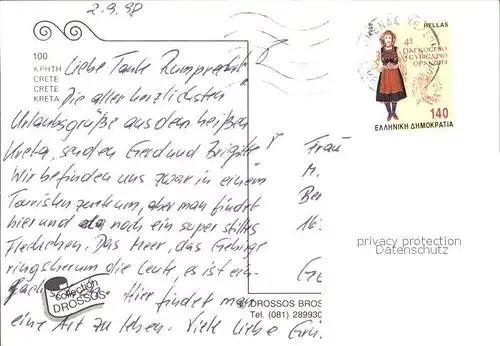 2.9.98
100
ΚΡΗΤΗ
CRETE
CRETE
KRETA
Liebe Tante Rumprecht
Die aller herzlichsten
Urlaubsgrüße aus dem heißen
Kreta, senden Gerd und Brigitte
Wir befinden uns zwar in einem
Touristenzentrum, aber man findet
hier und da noch ein super stilles
Fleckchen. Das Meer, das Gebirge
ringsherum die Leute, es ist ein-
fach Hier findet man
eine Art zu leben. Viele liebe Grü
Collection
DROSSOS
© DROSSOS BROS
Tel. (081) 289930
Frau
M.
Ber
16
HELLAS
4º
ΠΑΓΚΟΣΜΙΟ
ΣΥΝΕΔΡΙΟ
ΘΡΑΚΩΝ
140
ΕΛΛΗΝΙΚΗ ΔΗΜΟΚΡΑΤΙΑ
privacy protection
Datenschutz